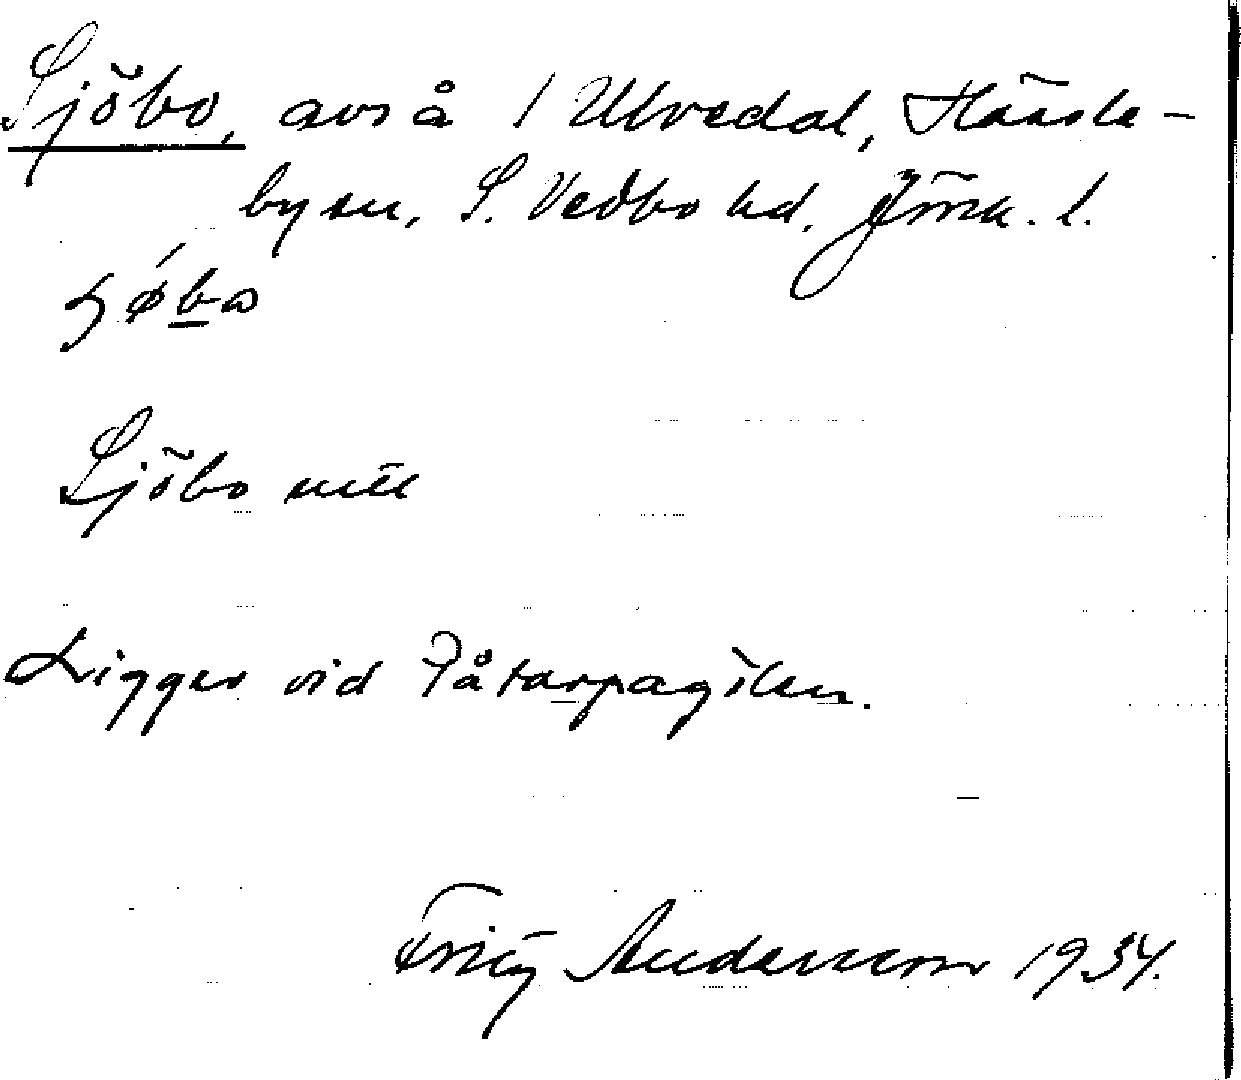 Sjöbo, avs å 1 Ulvedal, Hässle-
bysn, S. Vedbo hd, Jönk. l.
Sjöbo nitt
Ligger vid Påtarpagölen.
Fritz Andersson 1934.